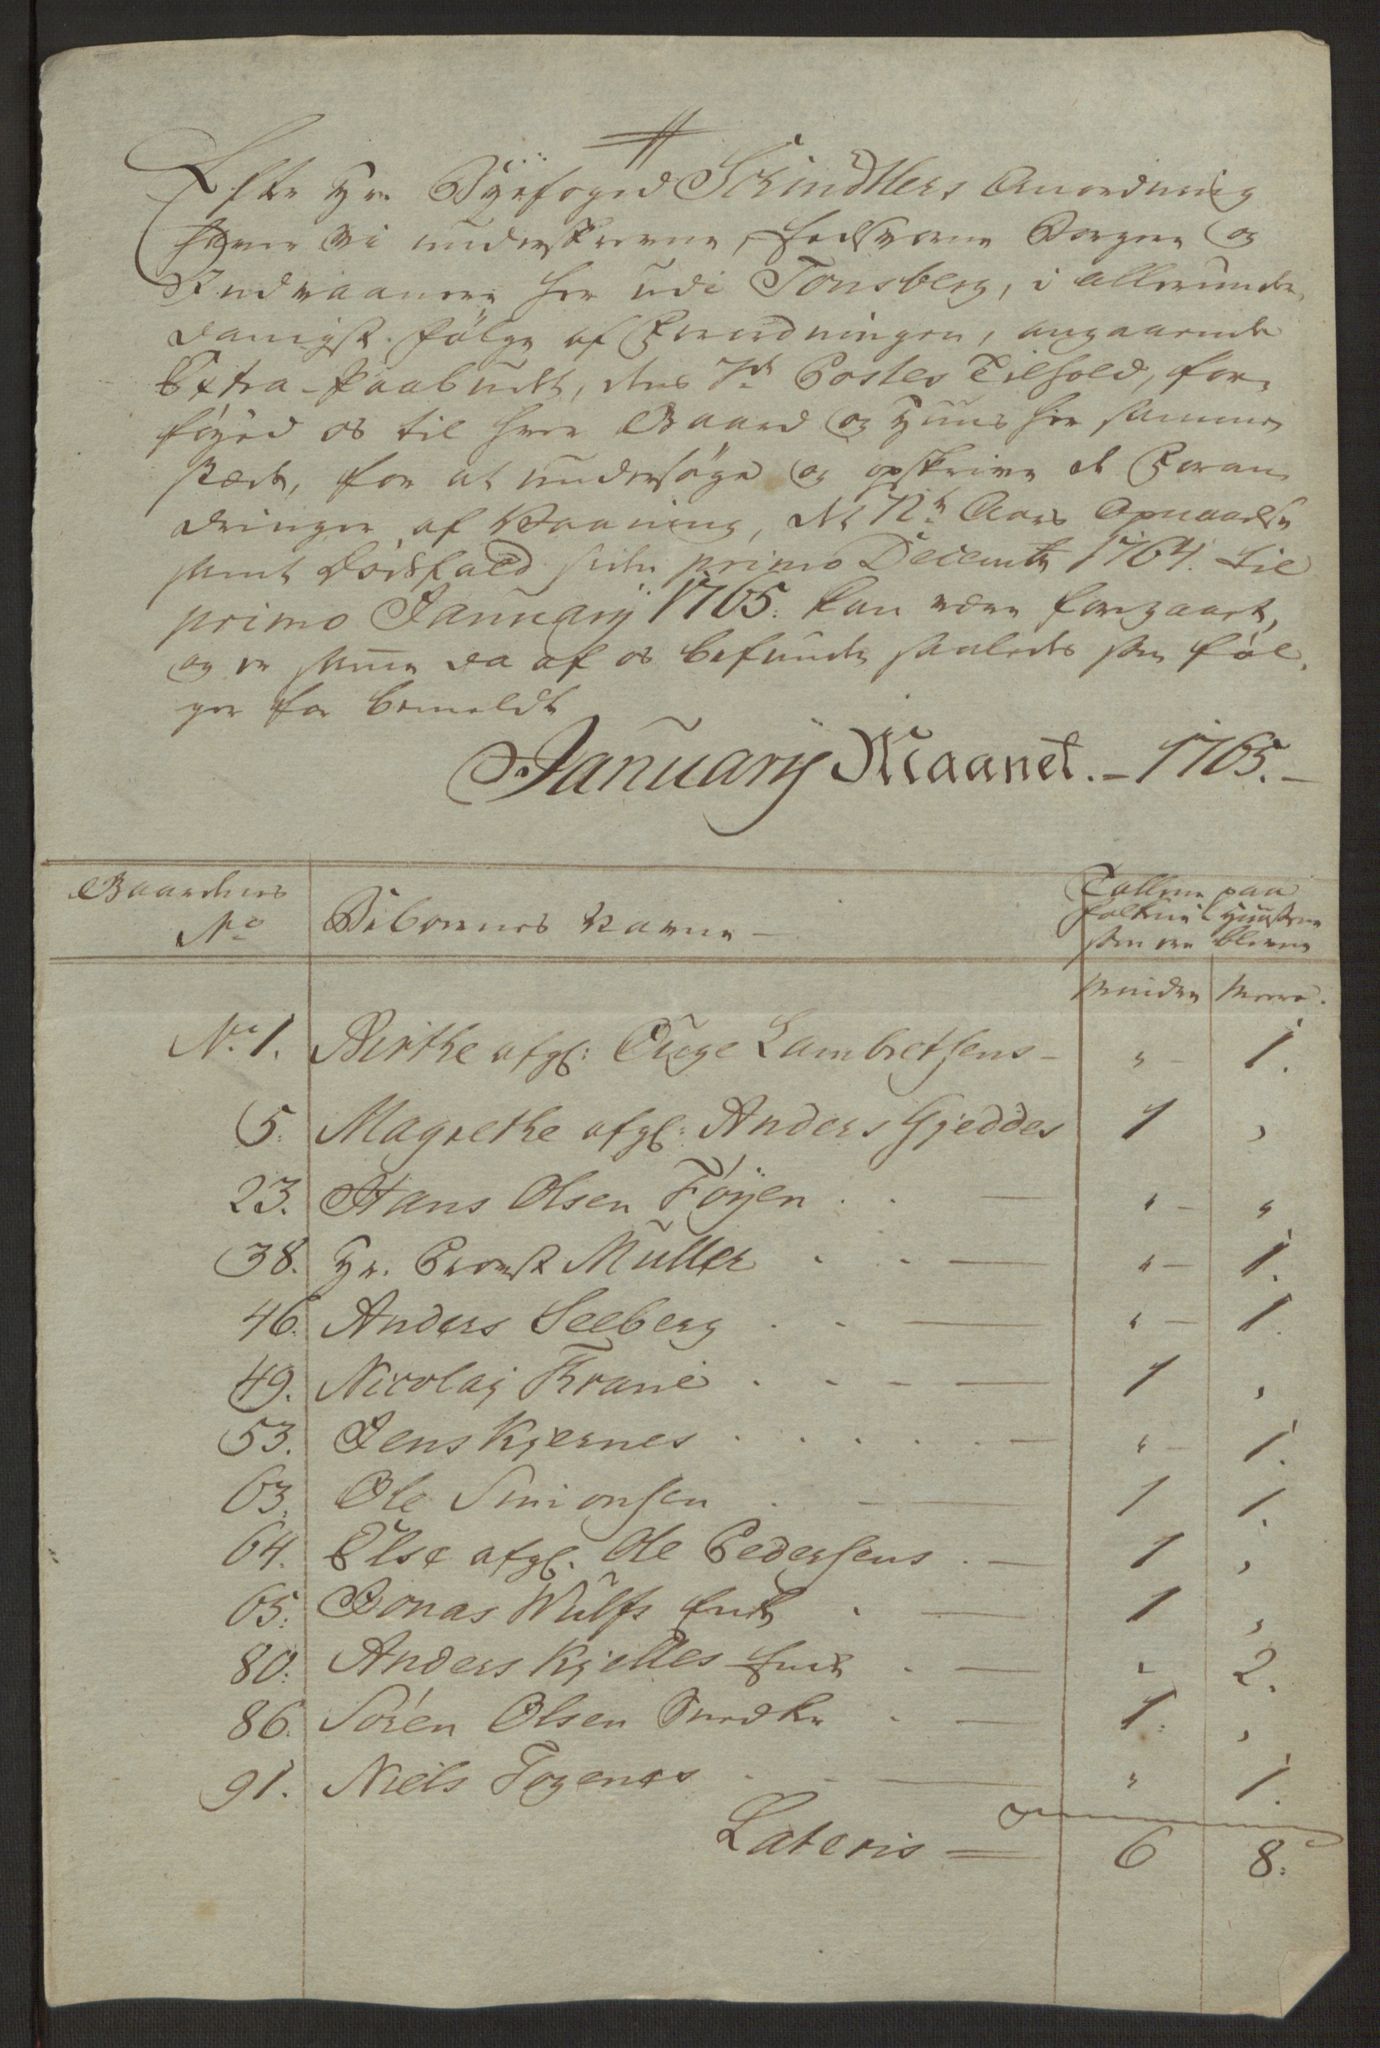 Efter Hr. Byefoged Schindtlers Anordning
haver vi underskrevne, Eedsvorne Borgere og
Indvaanere her udi Tonsberg, i allerunder-
danigst følge af Forordningen, angaaende
Extra-Paabudt, dens 7de Postes Tilhold, for-
føyed os til hver Gaard og Huus her sammen-
stæds, for at undersøge og opskrive de Foran-
dringer af Vaaning, de 12te Aars Opnaaelse
samt Dødsfald siden primo Decembr 1764. til
primo Januarij 1765. kan være foregaaet,
og er samme da af os befunden saaledes som føl-
ger for bemeldte
Januarij Maanet. - 1765. -
Gaardenes Beboernes Navne - Tallene paa
No Folkene i Huusene
som ere blevne
Minder Meere.
No. 1. Birthe afgl: Auge Lambretsens - " - 1.
5. Magrethe afgl: Anders Gjeddes 1 "
23. Hans Olsen Föyen . . — " - "
38. Hr. Provst Muller . . — " - 1.
46. Anders Seeberg . . — " - 1.
49. Nicolaj Krane . . . — 1 "
53. Jens Kjernes . . . . . . — " - 1.
63. Ole Simonsen . — 1 1.
64. Else afgl. Ole Pedersens . — 1 "
65. Jonas Wulfs Enke . — 1 "
80. Anders Kjelles Enke . — " 2.
86. Sören Olsen Smedke . — 1. "
91. Niels Fogenes . . — " 1.
Lateris = 6 8.